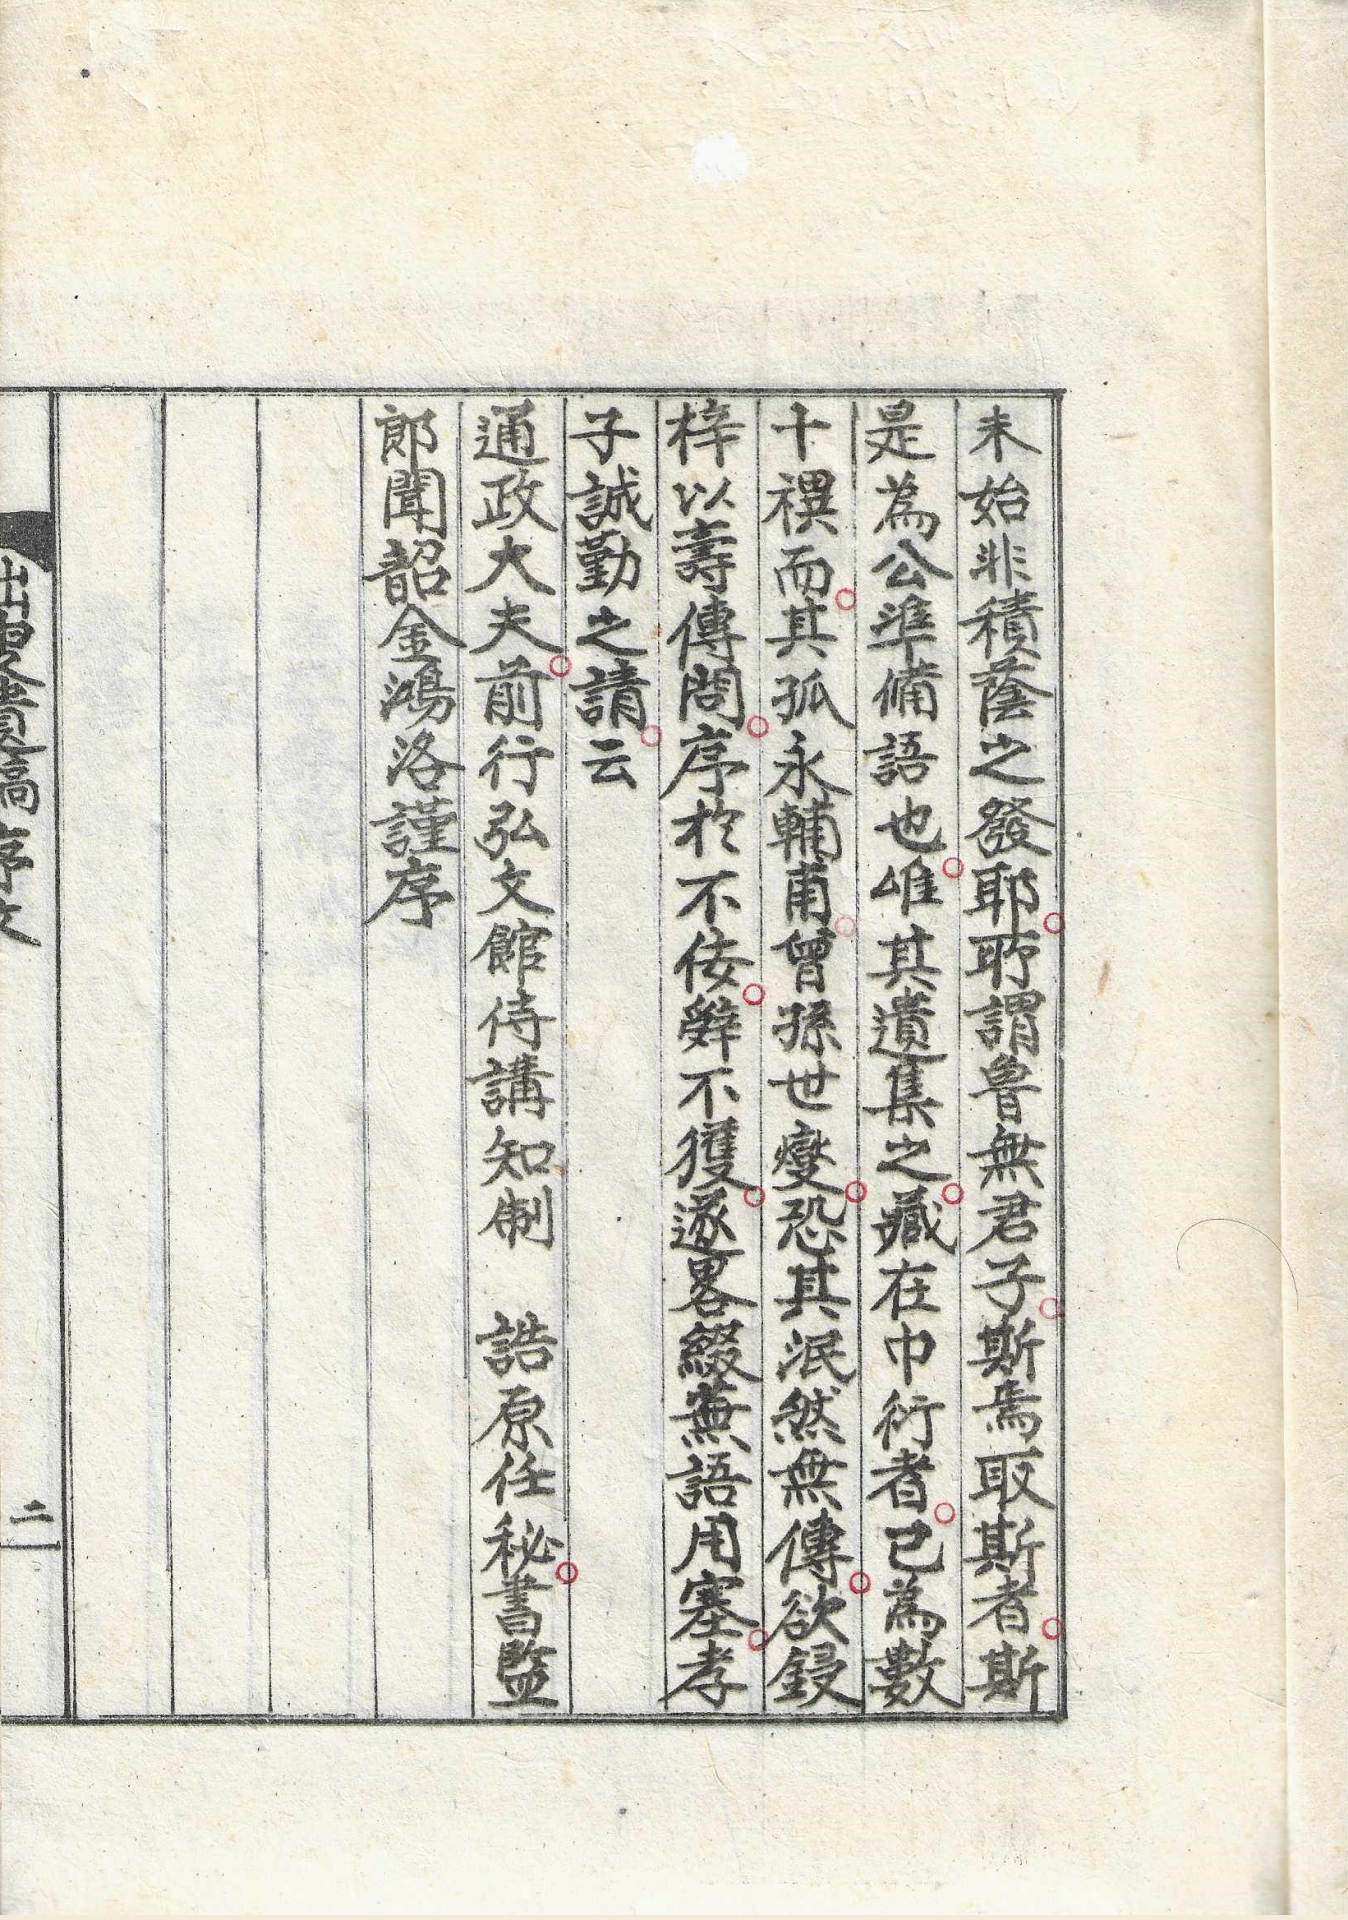 未始非積蔭之發耶所謂魯無君子斯焉取斯者斯
是為公準備語也唯其遺集之藏在巾衍者已為數
十禩而其孤永輔甫曾孫世燮恐其泯然無傳欲鋟
梓以壽傳問序於不佞辭不獲遂畧綴蕪語用塞孝
子誠勤之請云
通政大夫前行弘文館侍講知制 誥原任秘書監
郎聞韶金鴻洛謹序
遺稿序文
二